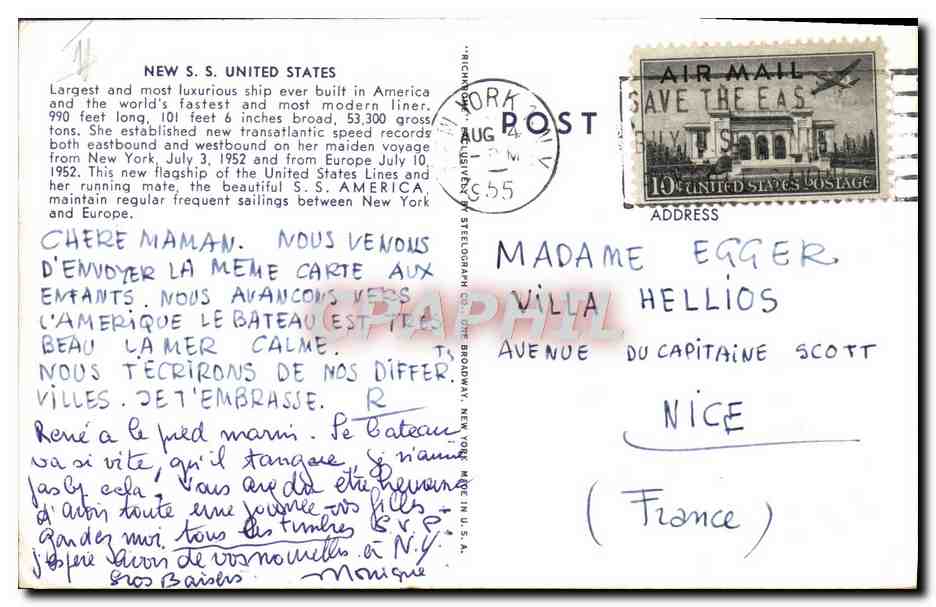 NEW S. S. UNITED STATES
Largest and most luxurious ship ever built in America
and the world's fastest and most modern liner.
990 feet long, 101 feet 6 inches broad, 53,300 gross
tons. She established new transatlantic speed records
both eastbound and westbound on her maiden voyage
from New York, July 3, 1952 and from Europe July 10,
1952. This new flagship of the United States Lines and
her running mate, the beautiful S. S. AMERICA,
maintain regular frequent sailings between New York
and Europe.
CHERE MAMAN. NOUS VENONS
D'ENVOYER LA MEME CARTE AUX
ENFANTS. NOUS AVANCONS VERS
L'AMERIQUE LE BATEAU EST TRES
BEAU LA MER CALME.
NOUS T'ECRIRONS DE NOS DIFFER. TS
VILLES. JE T'EMBRASSE. R
René a le pied marin. Le bateau
va si vite, qu'il tangue, je n'aime
pas cela, Vous avez dû être heureuse
d'avoir toute une journée vos filles -
gardez moi tous les timbres S.V.P.
j'espère avoir de vos nouvelles à N.Y.
Gros Baisers. Monique
"RICHKROME" EXCLUSIVELY BY STEELOGRAPH CO., ONE BROADWAY, NEW YORK MADE IN U.S.A.
YORK
AUG 4
1955
POST
AIR MAIL
SAVE THE EAS
BUY
10¢ UNITED STATES POSTAGE
ADDRESS
MADAME EGGER
VILLA HELLIOS
AVENUE DU CAPITAINE SCOTT
NICE
(France)
CPAPHIL